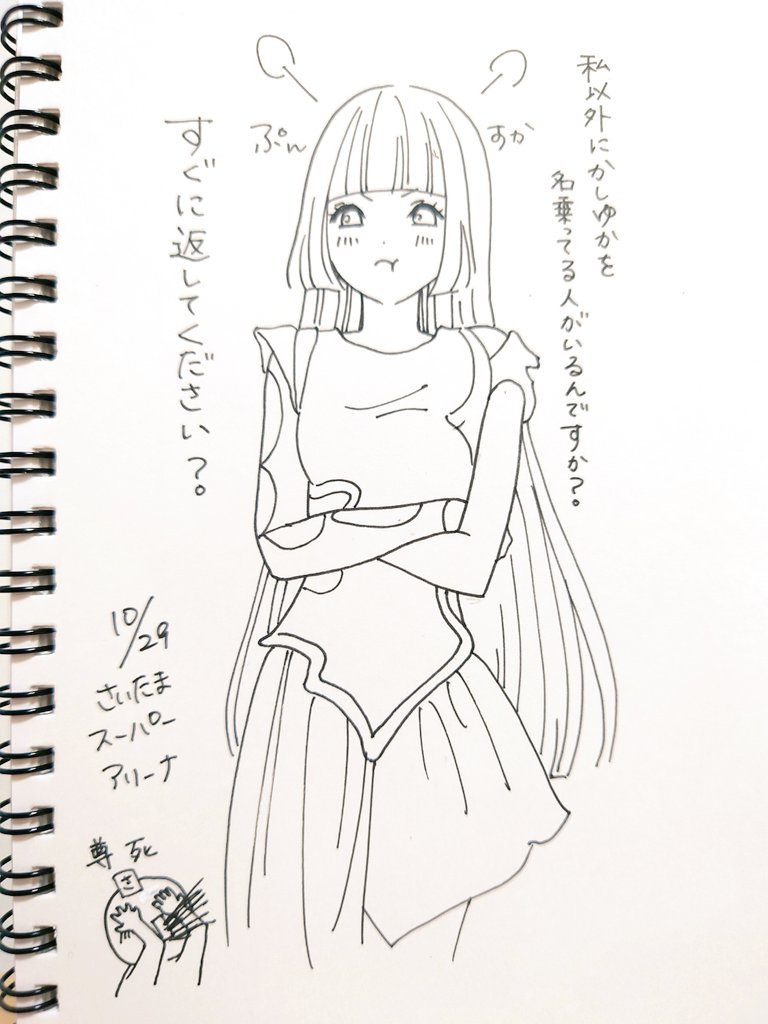 私以外にかしゆかを
名乗ってる人がいるんですか?。
すか
ぷん
すぐに返してください?。
10/29
さいたま
スーパー
アリーナ
尊死
さ